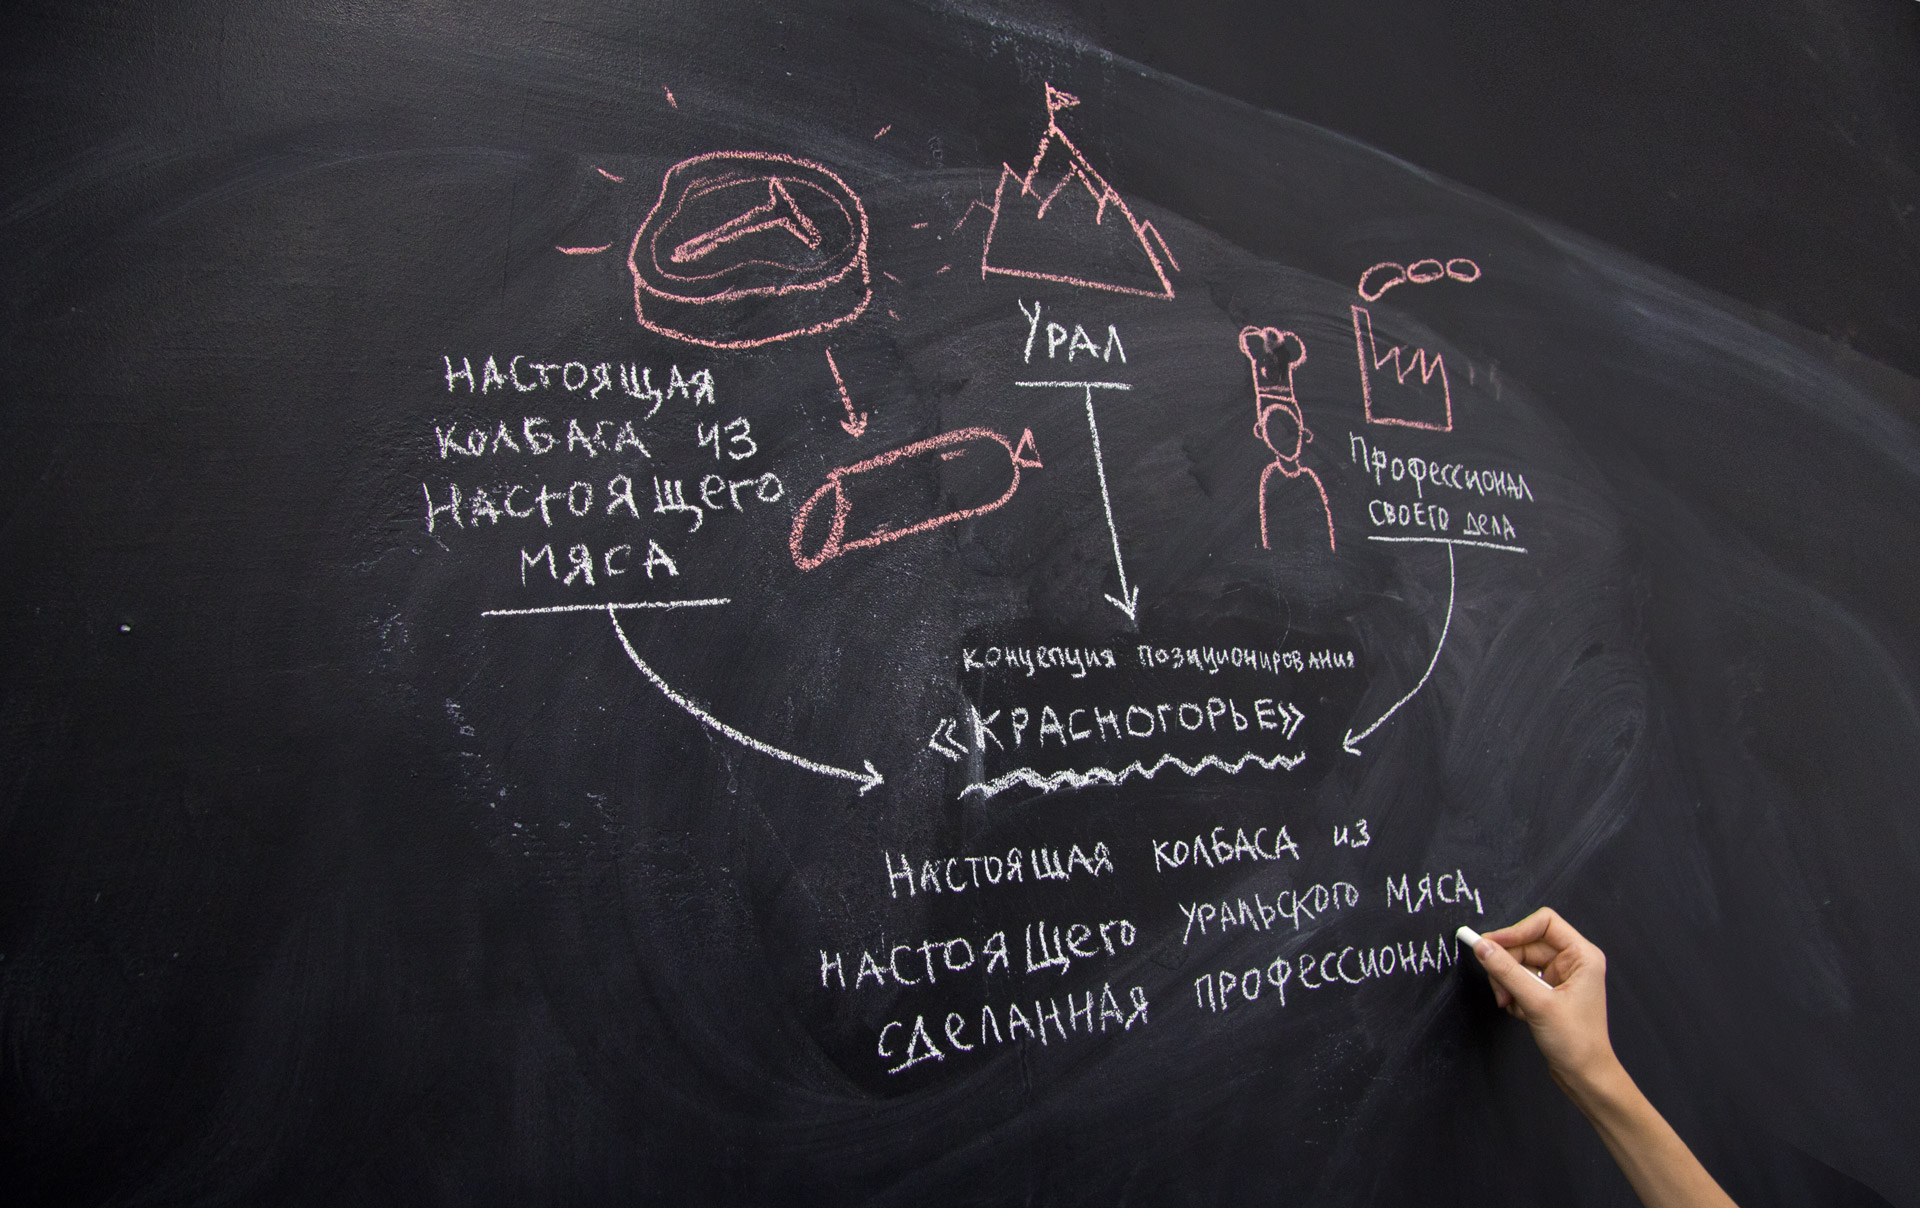 Настоящая
колбаса из
настоящего
мяса
Урал
Профессионал
своего дела
концепция позиционирования
«Красногорье»
Настоящая колбаса из
настоящего уральского мяса,
сделанная профессионал